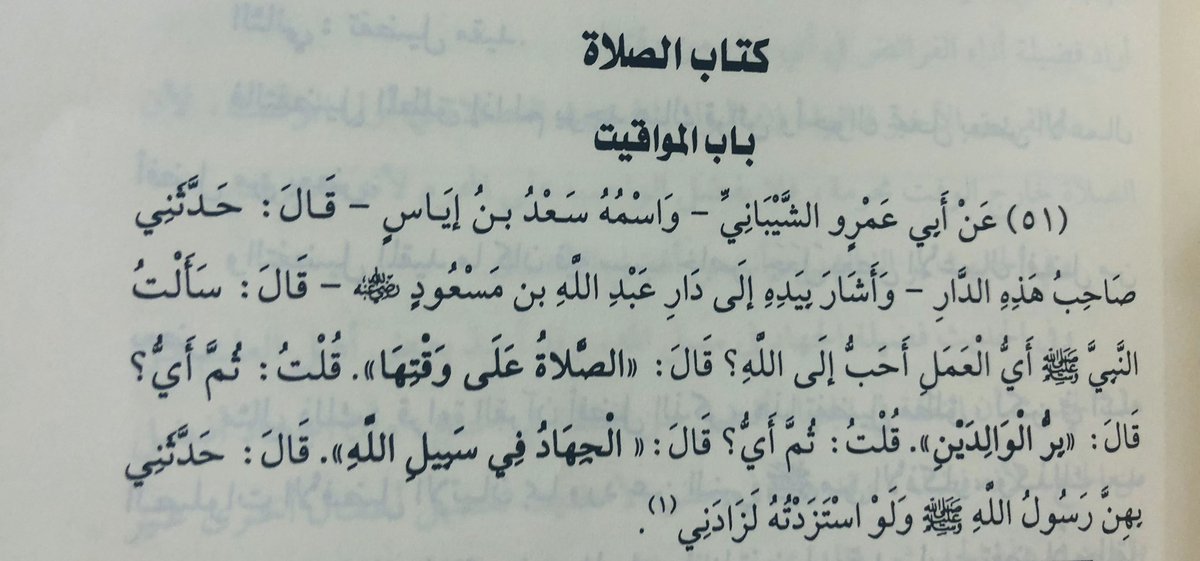 كتاب الصلاة
باب المواقيت
(٥١) عَنْ أَبِي عَمْرٍو الشَّيْبَانِيِّ – وَاسْمُهُ سَعْدُ بنُ إيَاسٍ – قَالَ: حَدَّثَنِي
صَاحِبُ هَذِهِ الدَّارِ – وَأَشَارَ بِيَدِهِ إلَى دَارِ عَبْدِ اللَّهِ بن مَسْعُودٍ رضي الله عنه – قَالَ: سَأَلْتُ
النَّبِيَّ ﷺ أَيُّ الْعَمَلِ أَحَبُّ إلَى اللَّهِ؟ قَالَ: «الصَّلاةُ عَلَى وَقْتِهَا». قُلْتُ: ثُمَّ أَيُّ؟
قَالَ: «بِرُّ الْوَالِدَيْنِ». قُلْتُ: ثُمَّ أَيُّ؟ قَالَ: « الْجِهَادُ فِي سَبِيلِ اللَّهِ». قَالَ: حَدَّثَنِي
بِهِنَّ رَسُولُ اللَّهِ ﷺ وَلَوْ اسْتَزَدْتُهُ لَزَادَنِي(١).